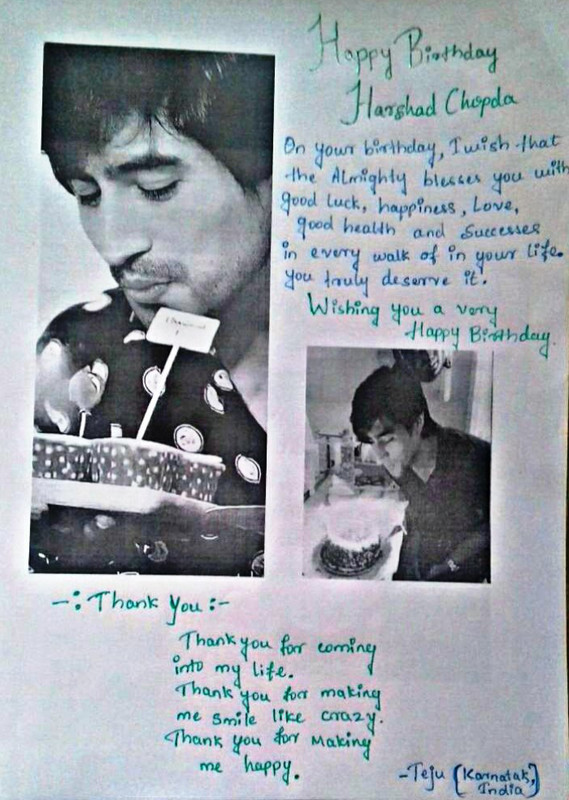 Happy Birthday
Harshad Chopda
On your birthday, I wish that
the Almighty blesses you with
good luck, happiness, Love,
good health and successes
in every walk of in your life.
you truly deserve it.
Wishing you a very
Happy Birthday.
-: Thank You :-
Thank you for coming
into my life.
Thank you for making
me smile like crazy.
Thank you for Making
me happy.
-Teju (Karnatak,
India)